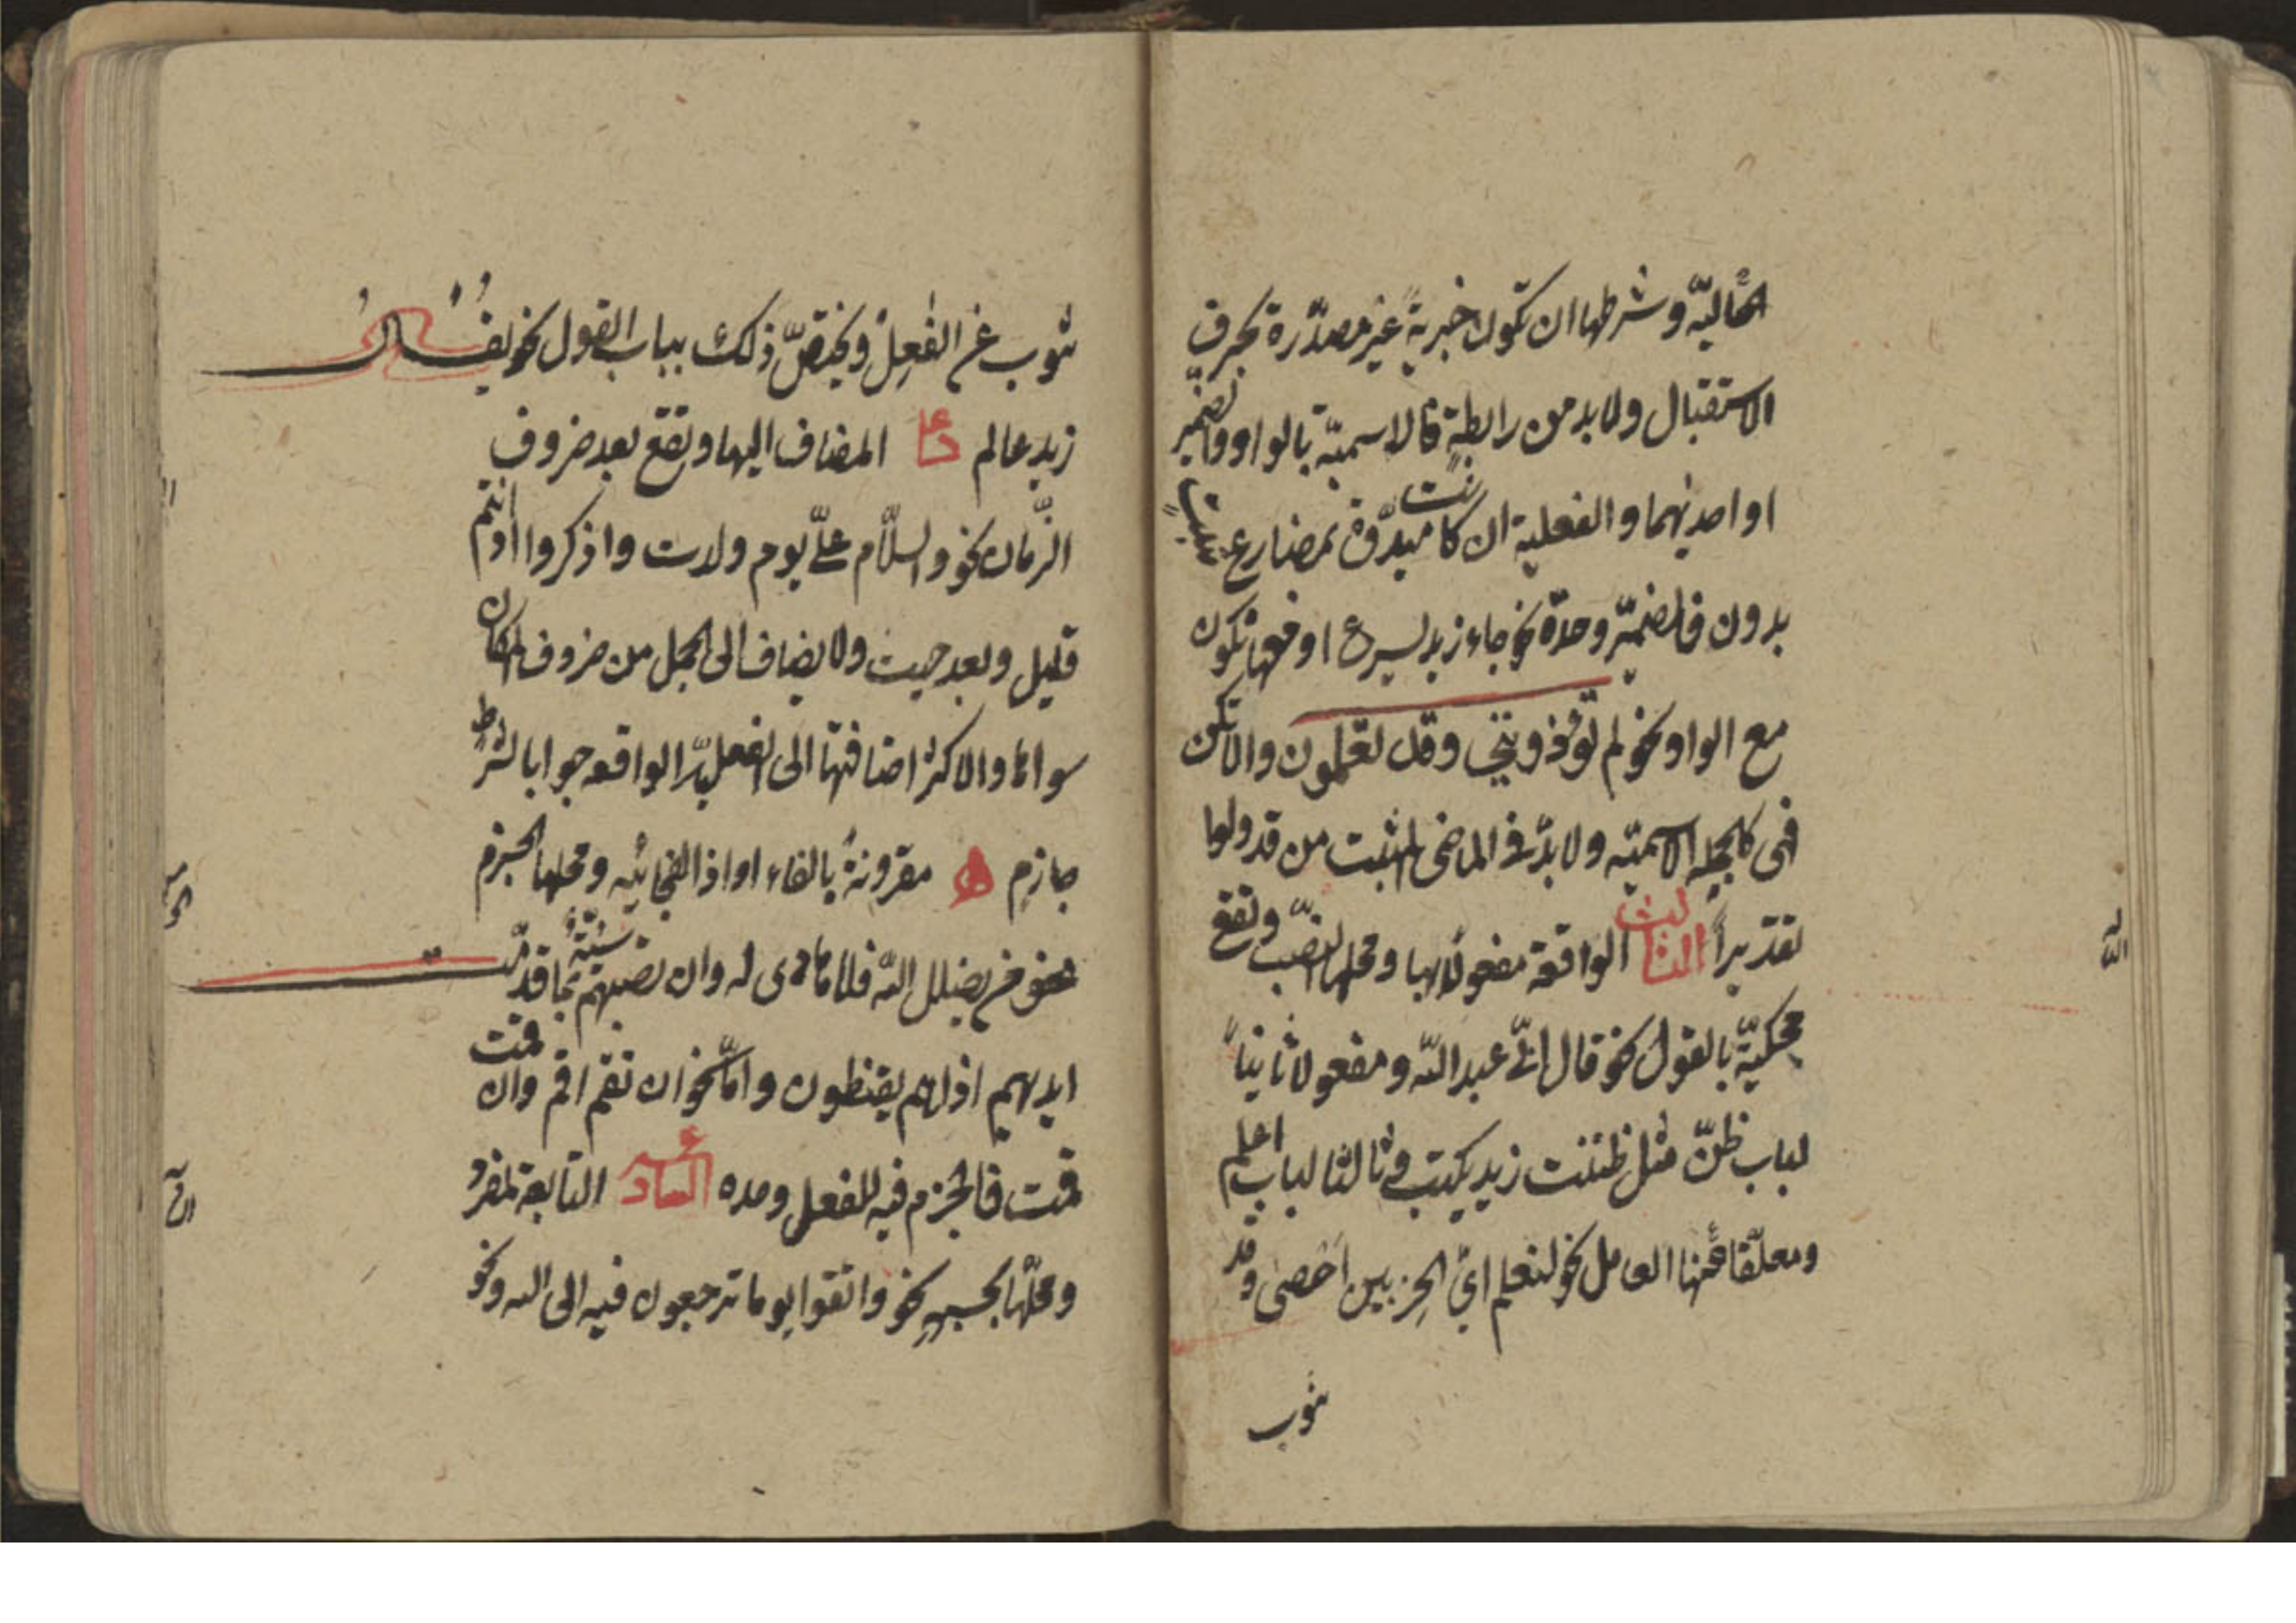 الحاليّة وشرطها ان تكون خبرية غير مصدّرة بحرف
الاستقبال ولا بد من رابطة فالاسميّة بالواو والضمير
او احديهما والفعلية ان كانت مبدوّة بمضارع مثبت
بدون قد فبالضمير وحده نحو جاء زيد يسرع او معها تكون
مع الواو نحو لم تؤذونني وقد تعلمون والا تكن
فى كالجمله الاسميّه ولا بدّ فى الماضى المثبت من قد ولو
تقديراً الثالث الواقعة مفعولاً بها ومحلها النصب وتقع
محكيّة بالقول نحو قال انّى عبد اللّه ومفعولا ثانياً
لباب ظنّ مثل ظننت زيد يكتب وثالثا لباب اعلم
ومعلّقا عنها العامل نحو لنعلم اىّ الحزبين احصى وقد
تنوب
تنوب عن الفعل ويختصّ ذلك بباب القول نحو يقال
زيد عالم المضاف اليها وتقع بعد ضروف
الزّمان نحو والسلّام علىّ يوم ولدت واذكروا اذ انتم
قليل وبعد حيث ولا يضاف الى الجمل من ضروف المكان
سواها والاكثر اضافتها الى الفعليّة الواقعه جوابا لشرط
جازم مقرونةً بالفاء او اذا الفجائيّه ومحلها الجزم
نحو من يضلل اللّه فلا هادى له وان تصبهم سيّئةٌ بما قدّمت
ايديهم اذا هم يقنطون وامّا نحو ان تقم اقم وان قمت
قمت فالجزم فيه للفعل وحده السادس التابعة لمفرد
ومحلّها بحسبه نحو واتقوا يوما ترجعون فيه الى الله ونحو